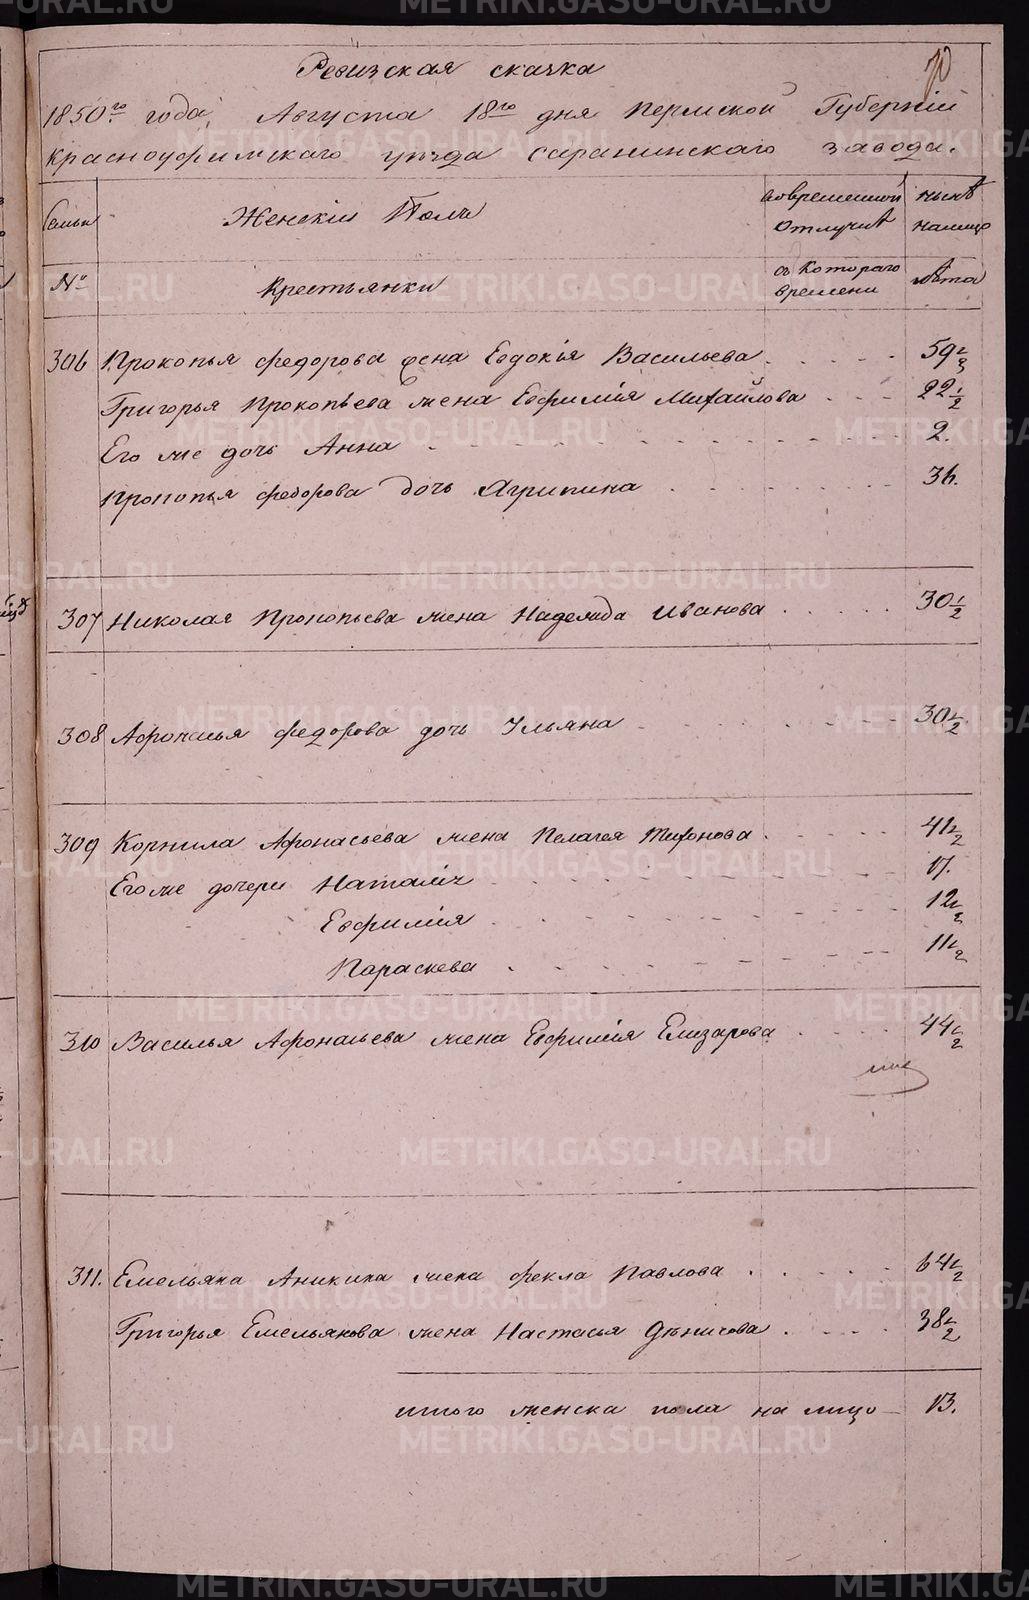 Ревизская скачка
1850го года, Августа 18го дня Пермской Губерніи
Красноуфимскаго уѣзда саранинскаго завода.
Семьи Женскіи Полъ вовременной нынѣ
отлучкѣ налицо
№ Крестьянки съ Котораго лѣта
времени
306 Прокопья федорова жена Евдокія Васильева 59 1/2
Григорья Прокопьева жена Евфимія Михайлова 22 1/2
Его же дочь Анна 2.
Прокопья федорова дочь Агрипина 36.
307 Николая Прокопьева жена Надежда Иванова 30 1/2
308 Афонасья федорова дочь Ульяна 30 1/2
309 Корнила Афонасьева жена Пелагея Тифонова 41 1/2
Его же дочери Наталія 17.
Евфимія 12 1/2
Параскева 11 1/2
310 Василья Афонасьева жена Евфимія Елизарова 44 1/2
311. Емельяна Аникина жена фекла Павлова 64 1/2
Григорья Емельянова жена Настасья Денисова 38 1/2
итого женска пола на лицо 13.
METRIKI.GASO-URAL.RU